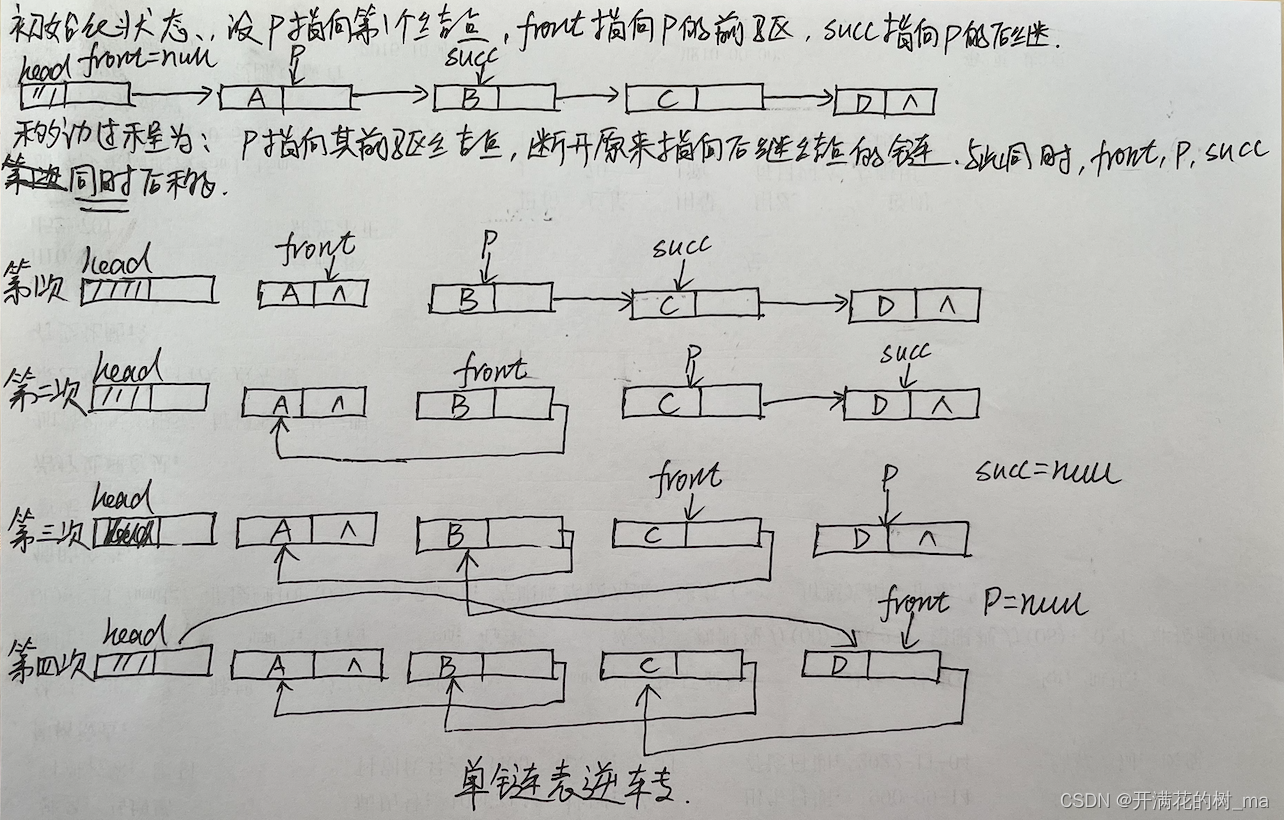 初始化状态、,设P指向第1个结点,front指向P的前驱,succ指向P的后继.
head front=null P succ
A B C D ∧
移动过程为:P指向其前驱结点,断开原来指向后继结点的链.与此同时,front,P,succ
同时后移.
front P succ
第1次 head A ∧ B C D ∧
front P succ
第二次 head A ∧ B C D ∧
front P succ=null
第三次 head A ∧ B C D ∧
front P=null
第四次 head A ∧ B C D
单链表逆转.
CSDN @开满花的树_ma